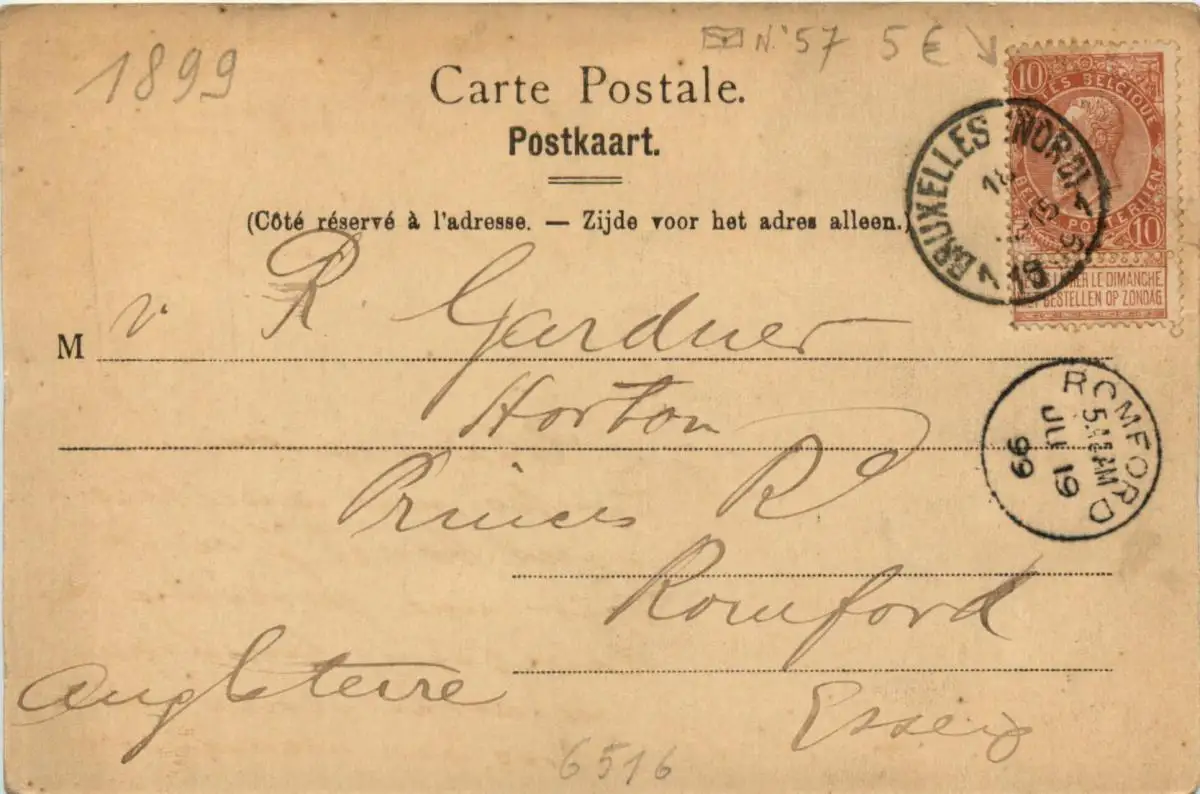 1899
N° 57 5 €
Carte Postale.
Postkaart.
(Côté réservé à l'adresse. — Zijde voor het adres alleen.)
10
POSTES BELGIQUE
BELGIË POSTERIJEN 10
LIVRER LE DIMANCHE
NIET BESTELLEN OP ZONDAG
BRUXELLES (NORD) 1
ROMFORD
JU 19
99
M r R Gardner
Horton
Princes Rd
Romford
Angleterre
Essex
6516